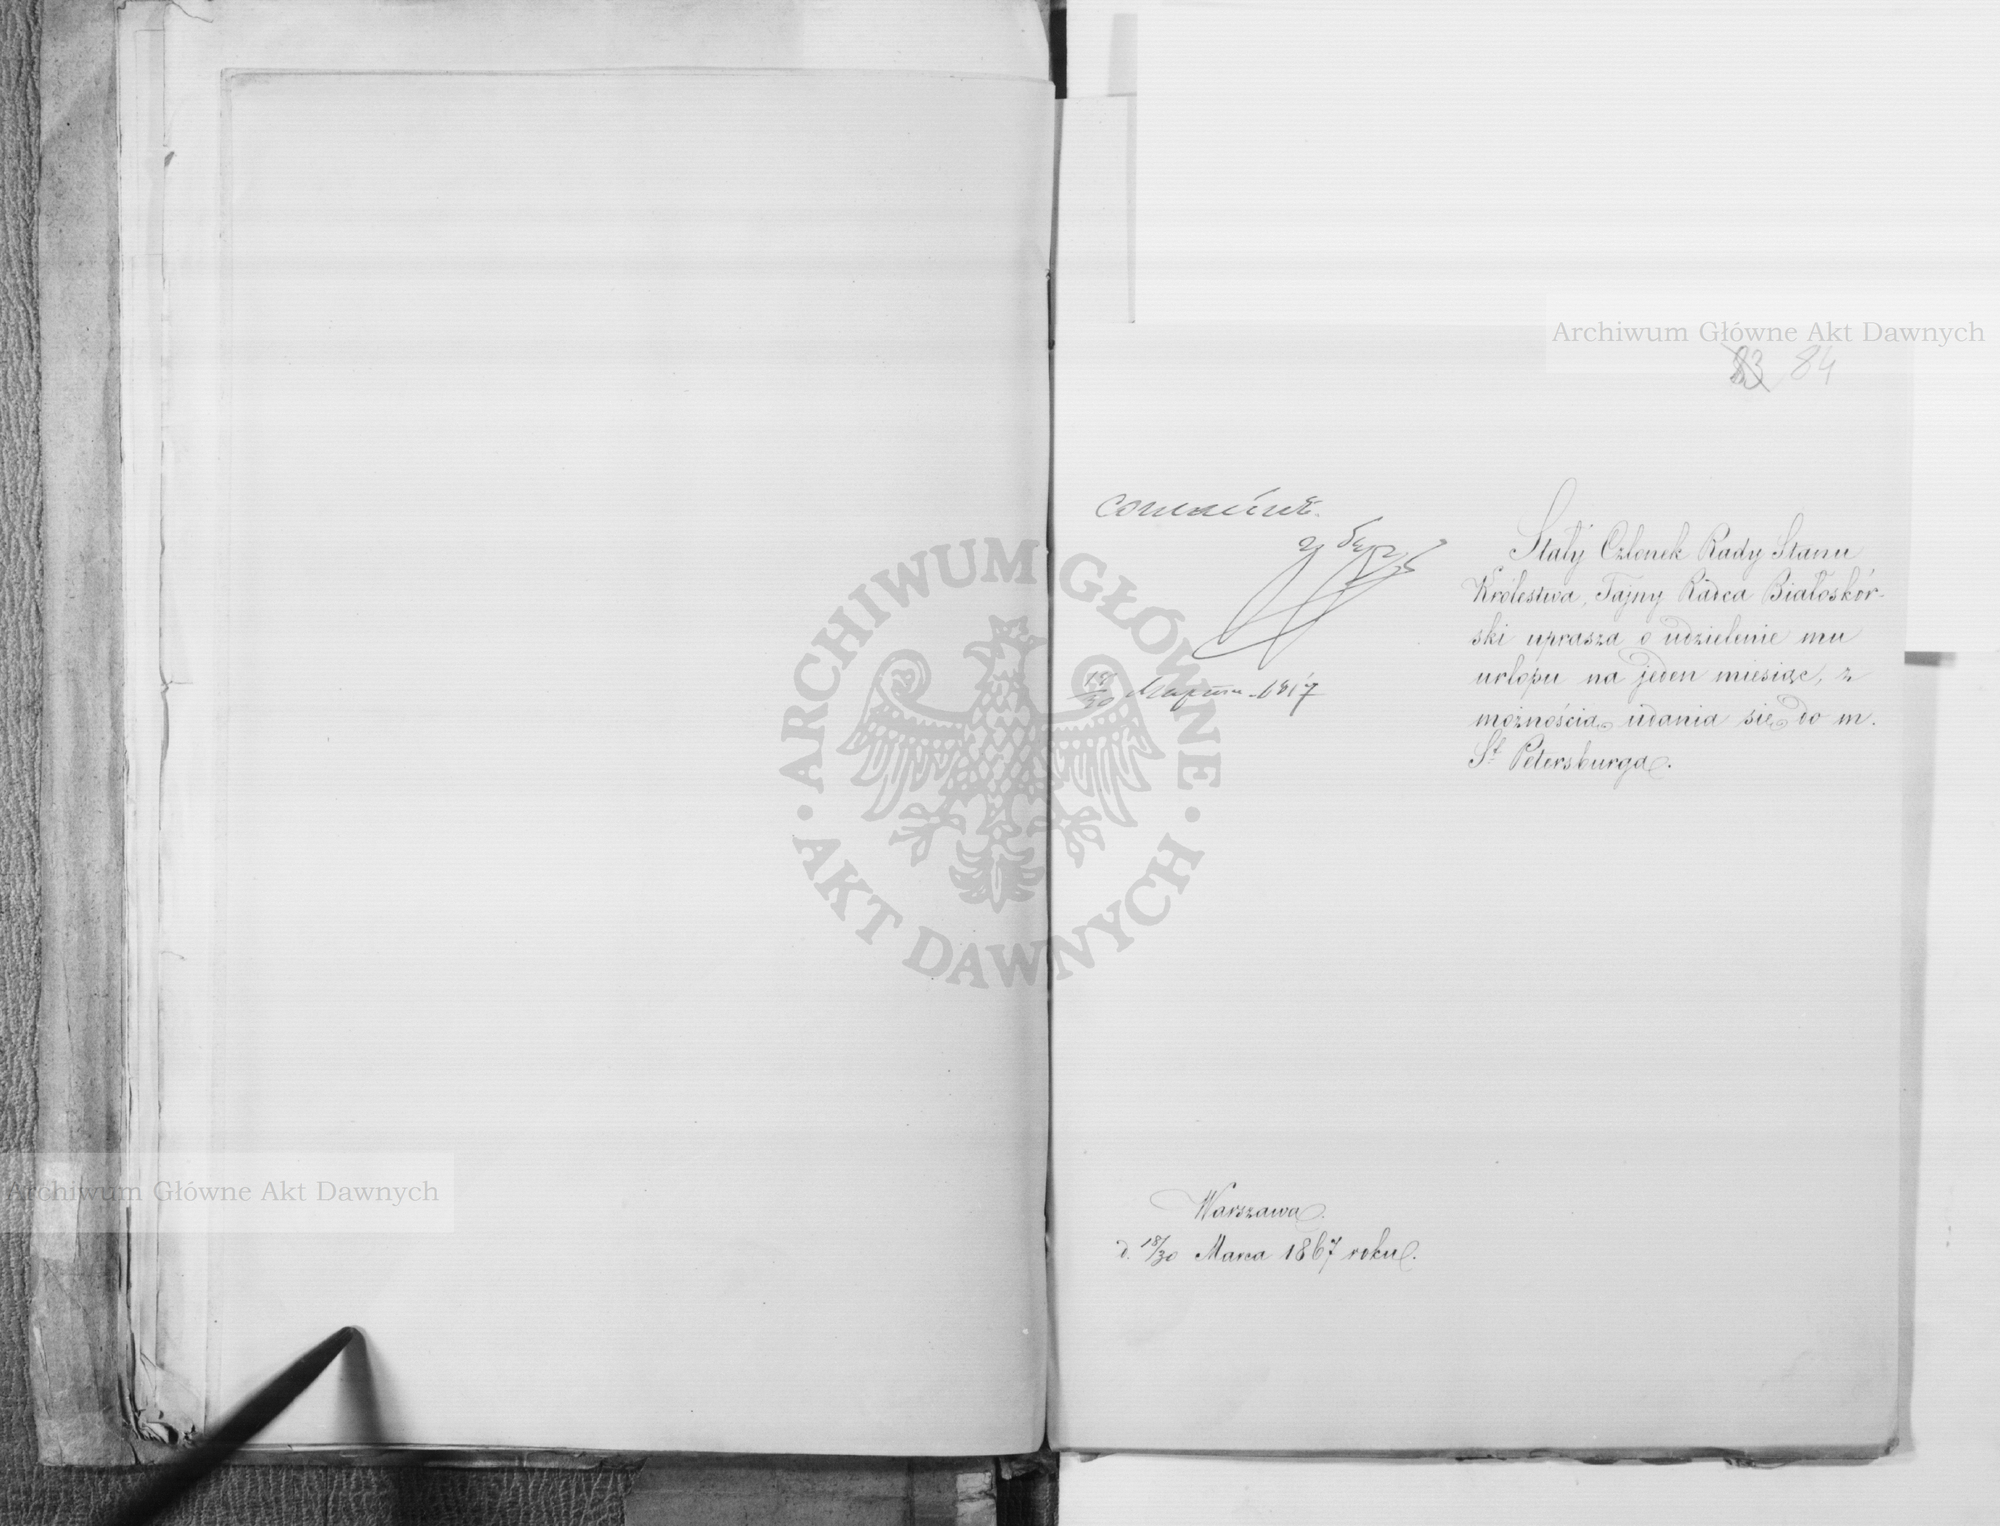 Archiwum Główne Akt Dawnych
83 84
согласенъ.
гр Бергъ
18/30 Марта 1867
Stały Członek Rady Stanu
Królestwa, Tajny Radca Białoskór-
ski uprasza o udzielenie mu
urlopu na jeden miesiąc, z
możnością udania się do m.
St Petersburga.
ARCHIWUM GŁÓWNE
· AKT DAWNYCH ·
Archiwum Główne Akt Dawnych
Warszawa.
d. 18/30 Marca 1867 roku.